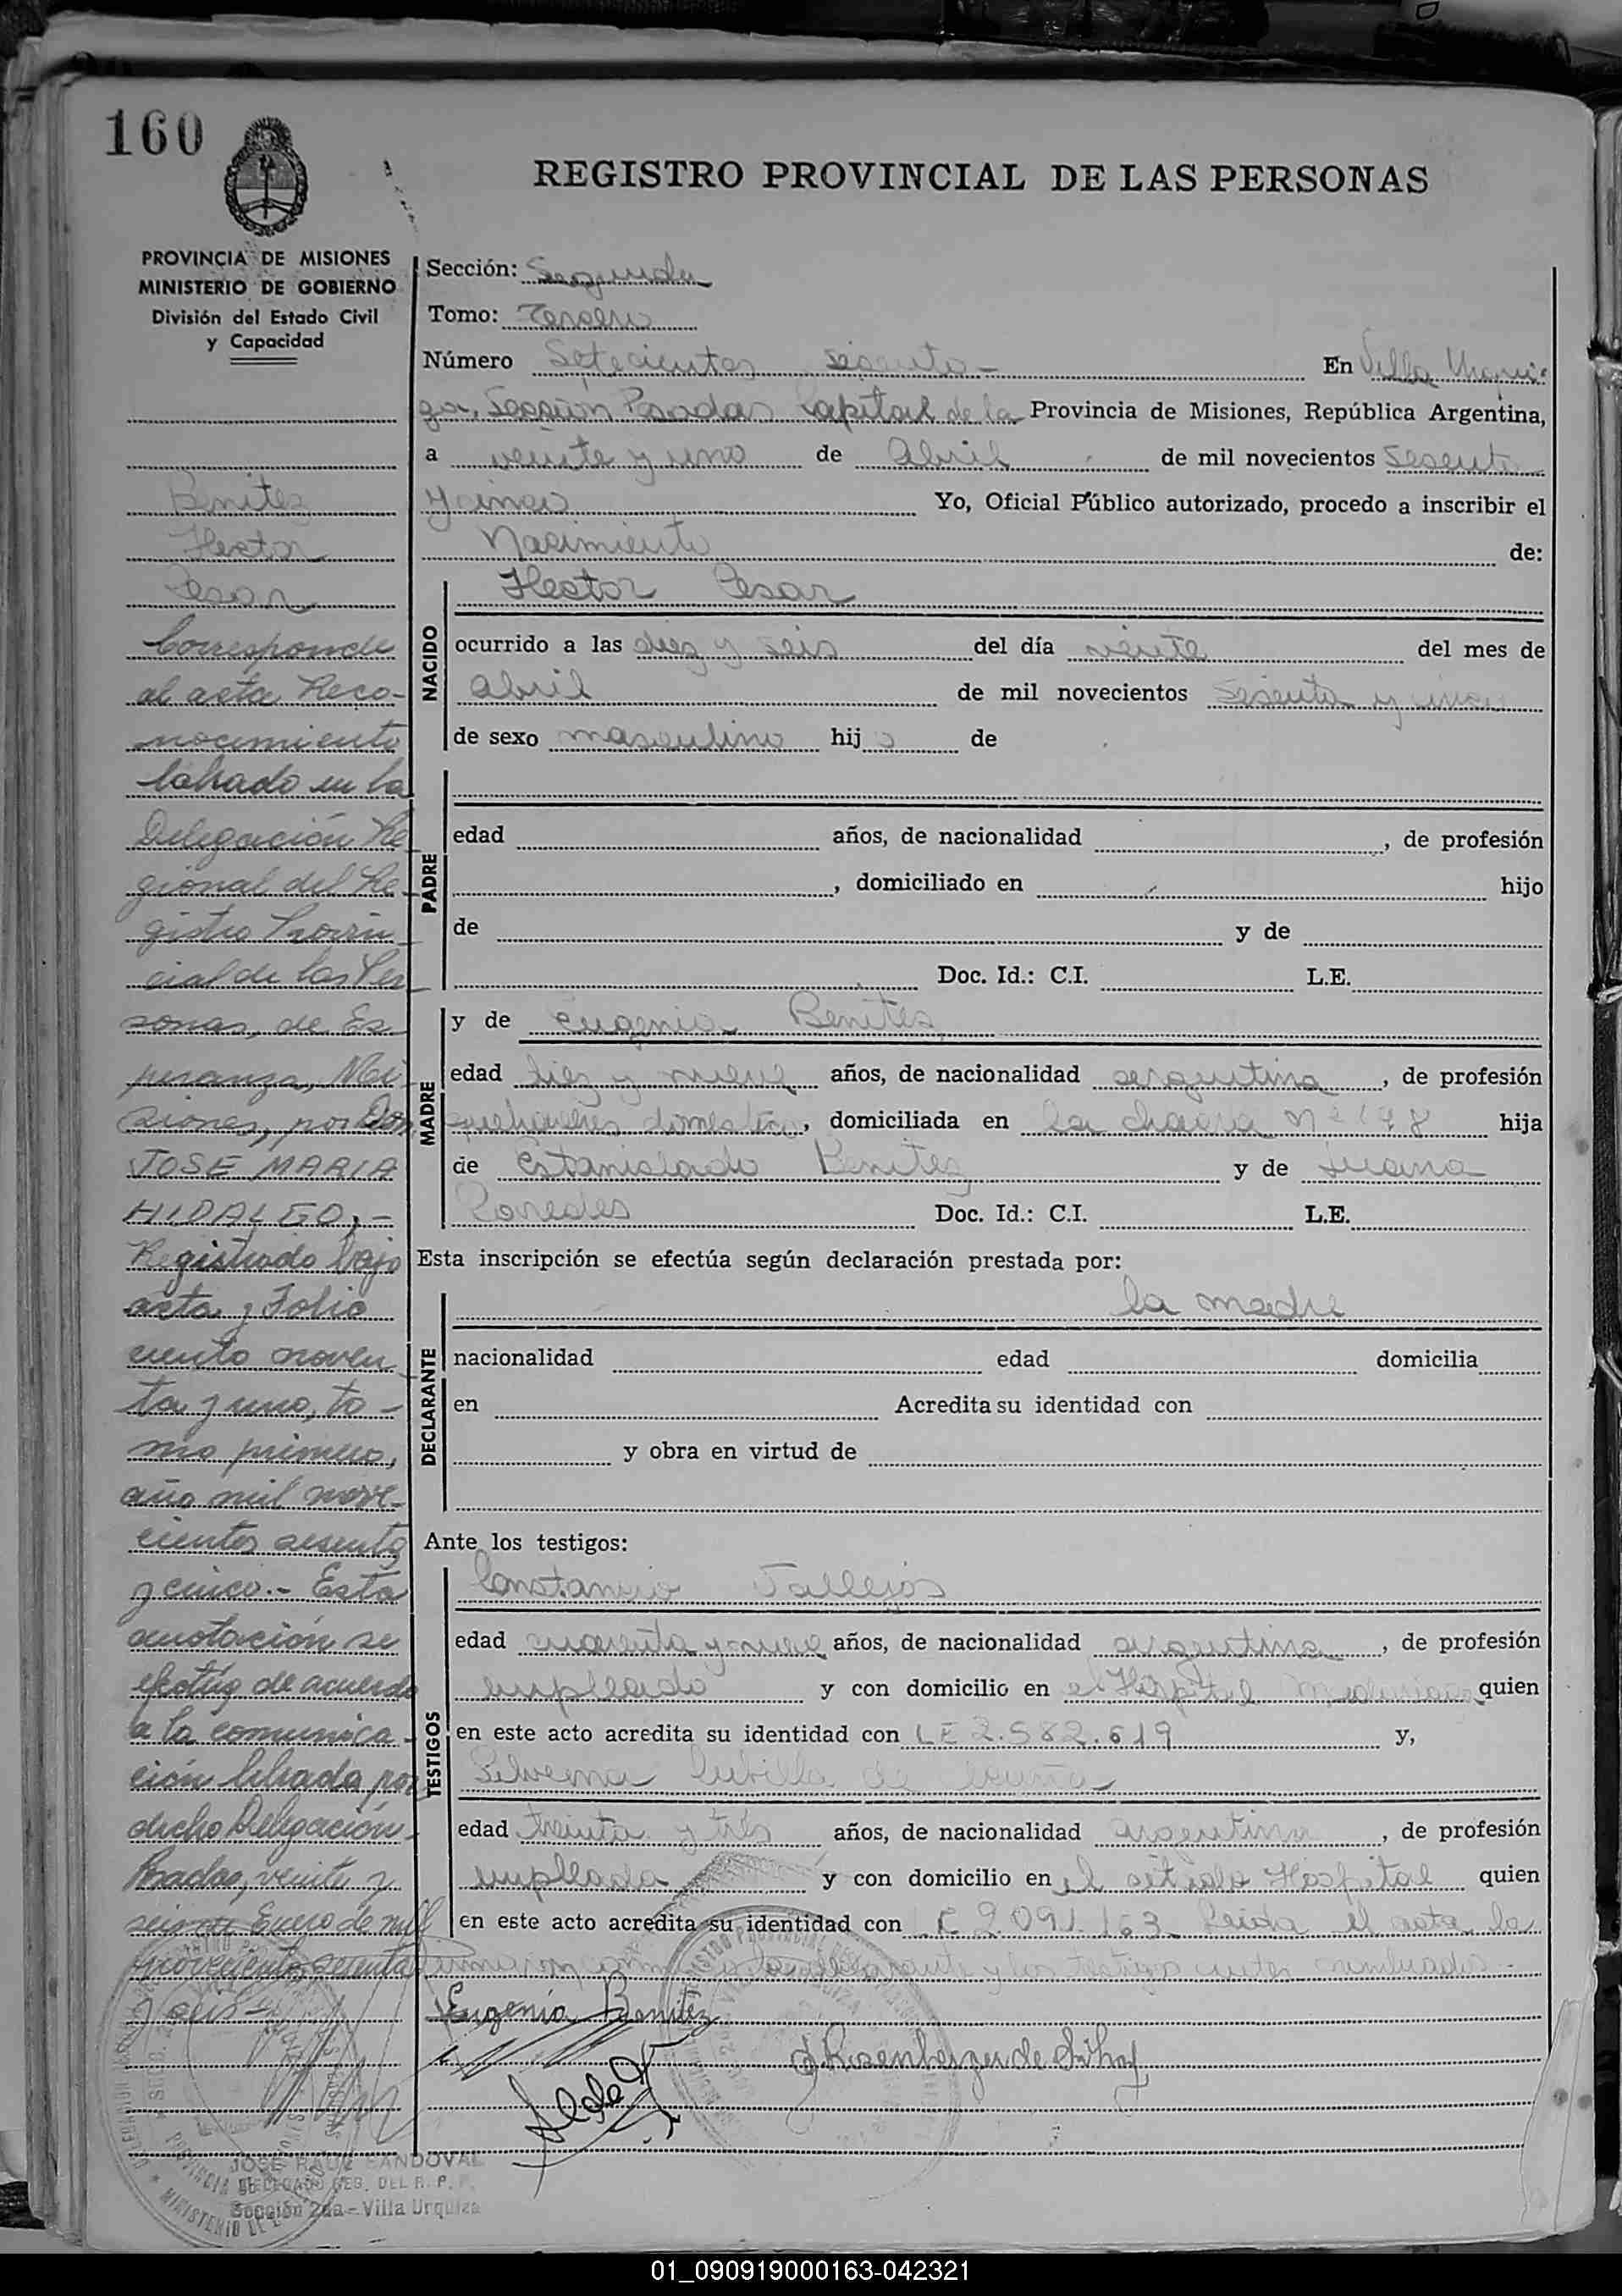 160
REGISTRO PROVINCIAL DE LAS PERSONAS
PROVINCIA DE MISIONES
MINISTERIO DE GOBIERNO
División del Estado Civil
y Capacidad
Benitez
Hector
Cesar
Corresponde
al acta Reco-
nocimiento
labrado en la
Delegación Re
gional del Re-
gistro Provin
cial de las Per
sonas, de Es
peranza, Mi
siones, por Don
JOSE MARIA
HIDALGO,-
Registrado bajo
acta y Folio
ciento noven
ta y uno, to-
mo primero,
año mil nove-
cientos sesenta
y cinco.- Esta
anotación se
efectúa de acuerdo
a la comunica-
ción librada por
dicha Delegación.
Posadas, veinte y
seis de Enero de mil
novecientos setenta
y seis-
Sección: Segunda
Tomo: Tercero
Número Setecientos sesenta- En Villa Urqui-
za, Sección Posadas Capital de la Provincia de Misiones, República Argentina,
a veinte y uno de Abril de mil novecientos Sesenta
y cinco Yo, Oficial Público autorizado, procedo a inscribir el
Nacimiento de:
NACIDO
Hector Cesar
ocurrido a las diez y seis del día veinte del mes de
abril de mil novecientos Sesenta y cinco
de sexo masculino hijo de
PADRE
edad años, de nacionalidad , de profesión
, domiciliado en hijo
de y de
Doc. Id.: C.I. L.E.
MADRE
y de Eugenia Benites
edad diez y nueve años, de nacionalidad argentina, de profesión
quehaceres domestico, domiciliada en la chacra Nº 198 hija
de Estanislado Benitez y de Juana
Paredes Doc. Id.: C.I. L.E.
Esta inscripción se efectúa según declaración prestada por:
DECLARANTE
la madre
nacionalidad edad domicilia
en Acredita su identidad con
y obra en virtud de
Ante los testigos:
TESTIGOS
Constancio Vallejos
edad cuarenta y nueve años, de nacionalidad argentina, de profesión
empleado y con domicilio en el Hospital quien
en este acto acredita su identidad con LE 2.582.619 y,
Silveria Cubilla de Acuña
edad treinta y tres años, de nacionalidad argentina, de profesión
empleada y con domicilio en el citado Hospital quien
en este acto acredita su identidad con LC 2.091.163 Leida el acta la
y los testigos antes nombrados-
Eugenia Benitez
JOSE RAUL SANDOVAL
DELEGADO REG. DEL R. P. P.
Sección 2da - Villa Urquiza
01_090919000163-042321